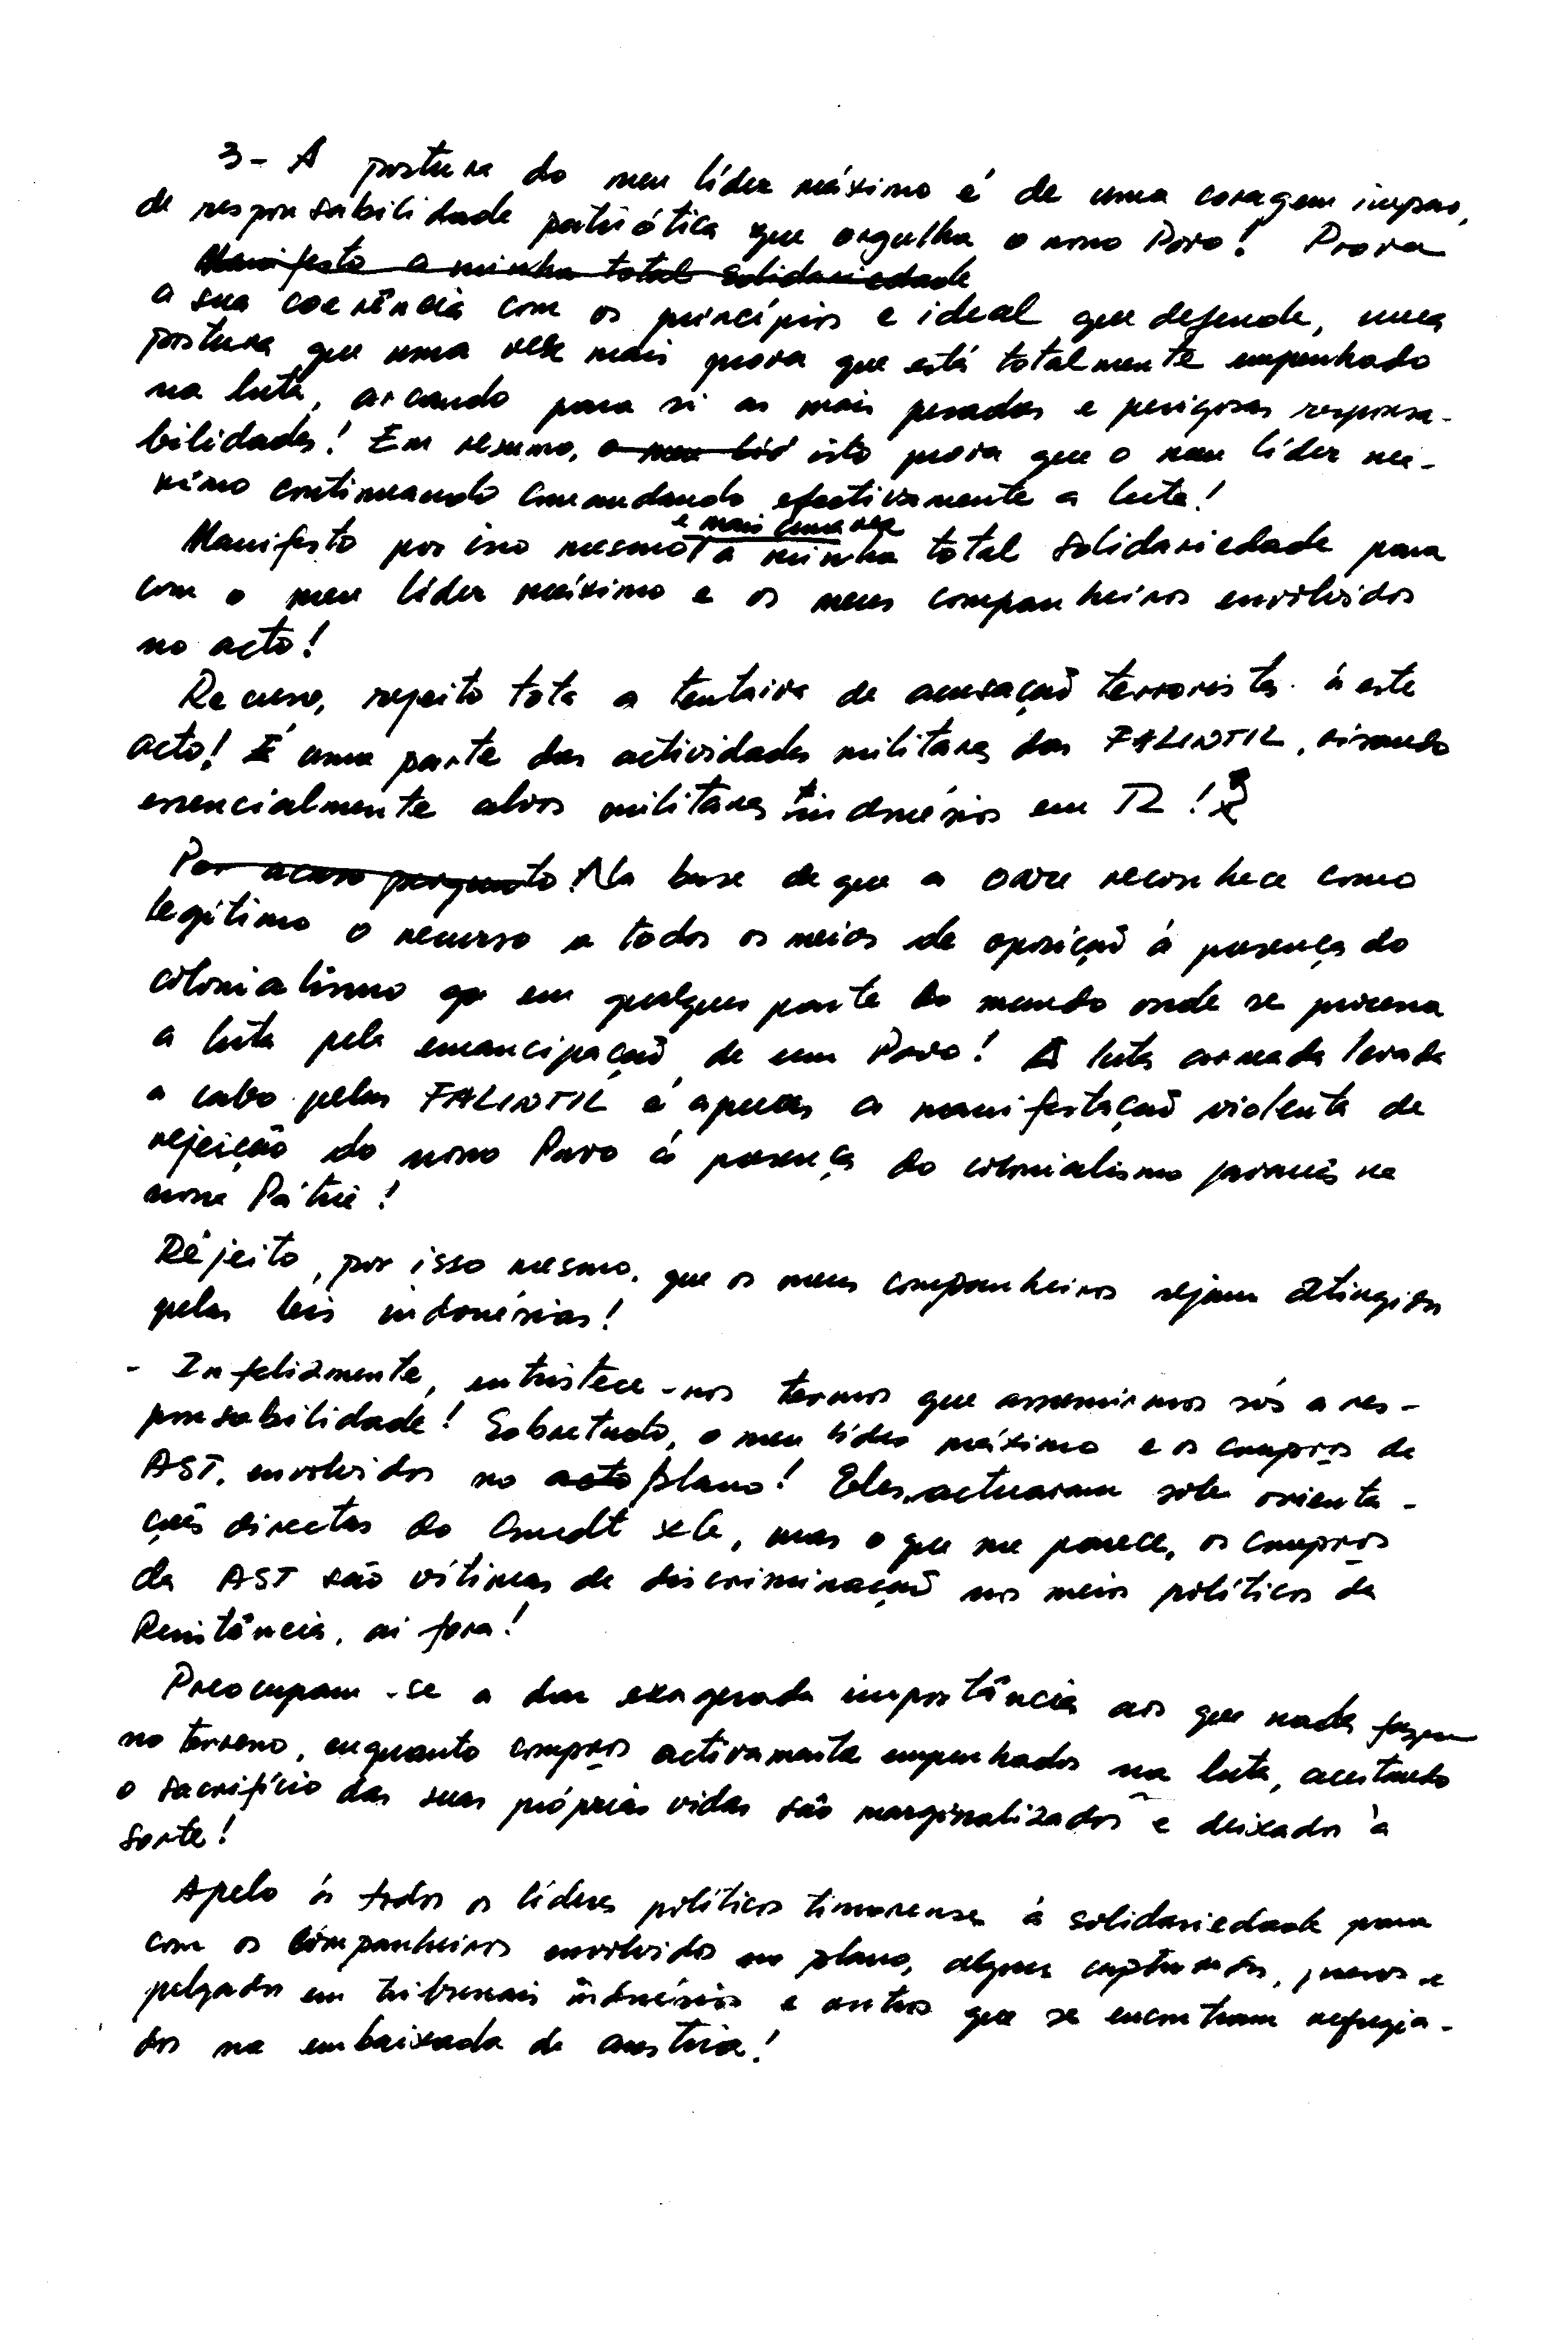 3- A postura do meu líder máximo é de uma coragem impar,
de responsabilidade patriótica que orgulha o nosso Povo! Prova
Manifesto a minha total solidariedade
a sua coerência com os princípios e ideal que defende, uma
postura que uma vez mais prova que está totalmente empenhado
na luta, arcando para si as mais pesadas e perigosas responsa-
bilidades! Em resumo, o meu líd isto prova que o meu líder má-
ximo continuando comandando efectivamente a luta!
e mais uma vez
Manifesto por isso mesmo a minha total solidariedade para
com o meu líder máximo e os meus companheiros envolvidos
no acto!
Recuso, rejeito tota a tentaiva de acusação terrorista à este
acto! É uma parte das actividades militares das FALINTIL, visando
essencialmente alvos militares indonésios em TL!
Por acaso pergunto Na base de que a ONU reconhece como
legítimo o recurso a todos os meios de oposição à presença do
colonialismo em qualquer parte do mundo onde se processa
a luta pela emancipação de um Povo! A luta armada levada
a cabo pelas FALINTIL é apenas a manifestação violenta de
rejeição do nosso Povo à presença do colonialismo javanês na
nossa Pátria!
Rejeito, por isso mesmo, que os meus companheiros sejam atingidos
pelas leis indonésias!
- Infelizmente, entristece-nos termos que assumirmos sós a res-
ponsabilidade! Sobretudo, o meu líder máximo e os compros da
AST, envolvidos no acto plano! Eles actuaram sob orienta-
ções directas do Cmdt XG, mas o que me parece, os compros
da AST são vítimas de discriminação nos meios políticos da
Resistência, aí fora!
Preocupam-se a dar exagerada importância aos que nada fazem
no terreno, enquanto compros activamente empenhados na luta, aceitando
o sacrifício das suas próprias vidas são marginalizados e deixados à
sorte!
Apelo à todos os líderes políticos timorenses à solidariedade para
com os companheiros envolvidos no plano, alguns capturados, presos e
julgados em tribunais indonésios e outros que se encontram refugia-
dos na embaixada da austria!